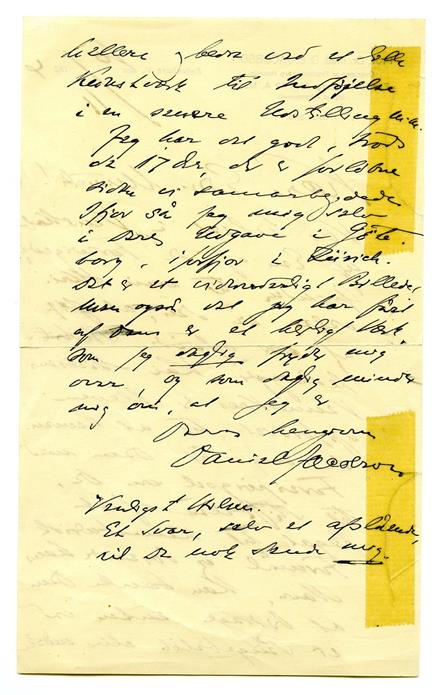 hellere bede om et
Kunstværk til Indføjelse
i en senere Udstilling m.m.
Jeg har det godt, trods
de 17 Aar, der er forløbne
siden vi samarbejdede
Ifjor så jeg mig selv
i Deres Udgave i Göte-
borg, i forfjor i Zürich.
Det er et vidunderligt Billede,
men også det jeg har fået
af Dem er et herligt Værk
som jeg daglig fryder mig
over, og som daglig minder
mig om, at jeg er
Deres hengivne
Daniel Jacobson
Venligst Hilsen.
Et Svar, selv et afslående,
vil De nok sende mig.